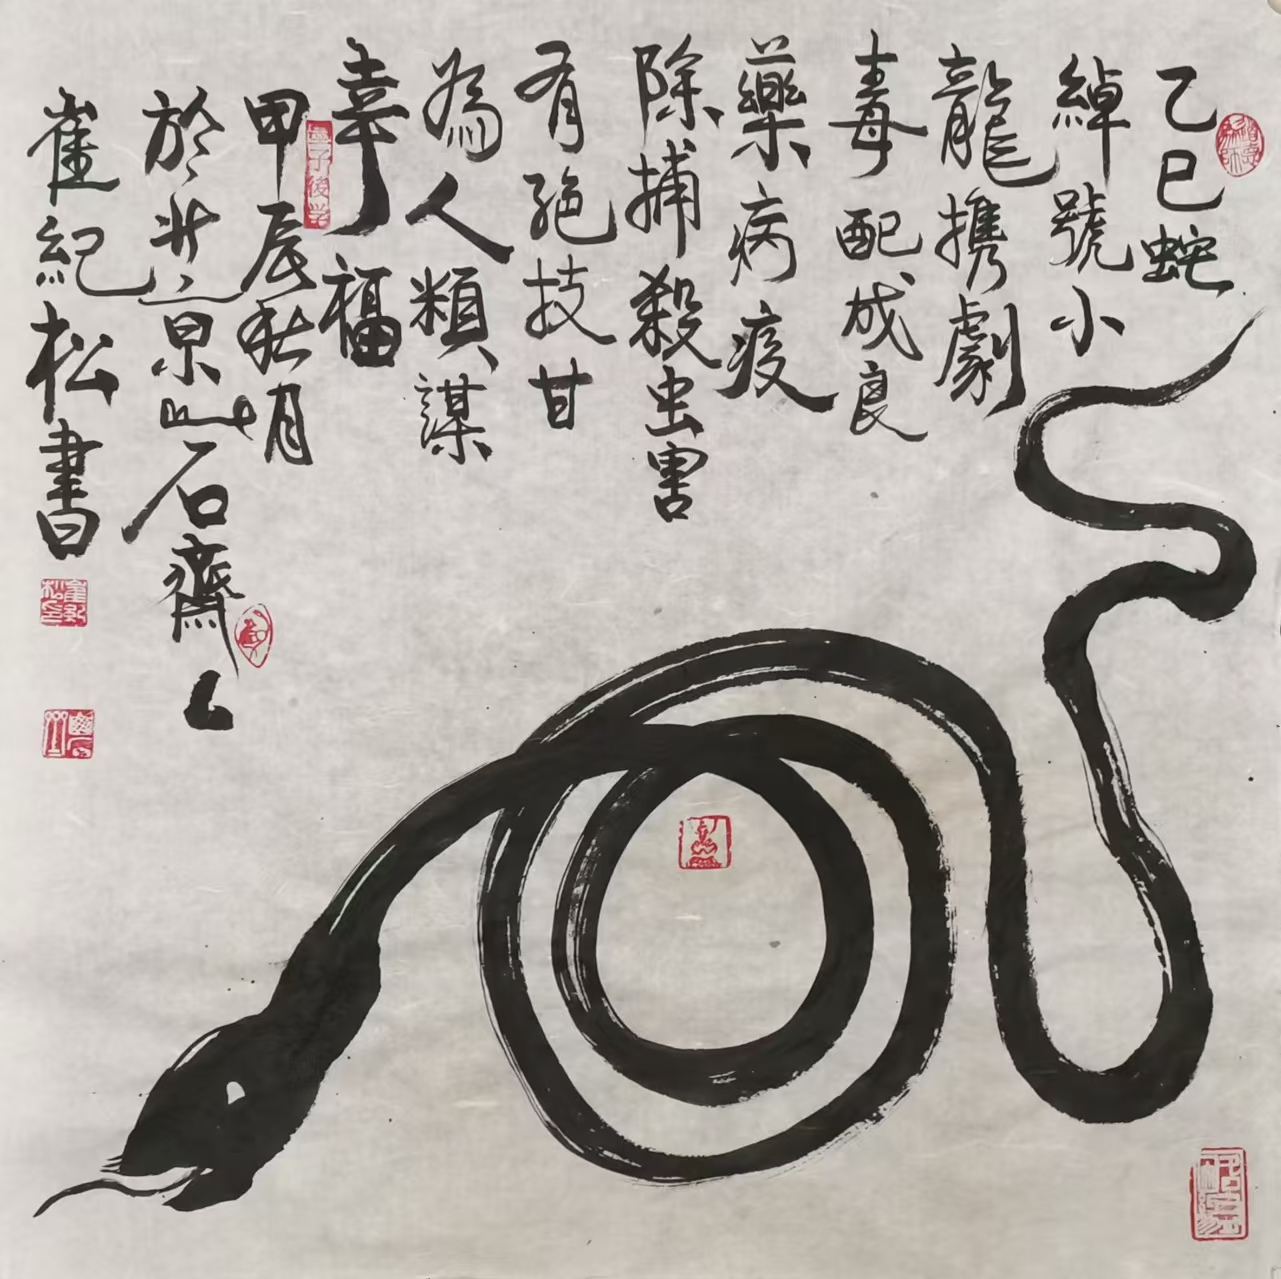 乙巳蛇
綽號小
龍携劇
毒配成良
藥病疫
除捕殺虫害
有絕技甘
為人類謀
幸福
甲辰秋月
於北京山石齋
崔紀松書